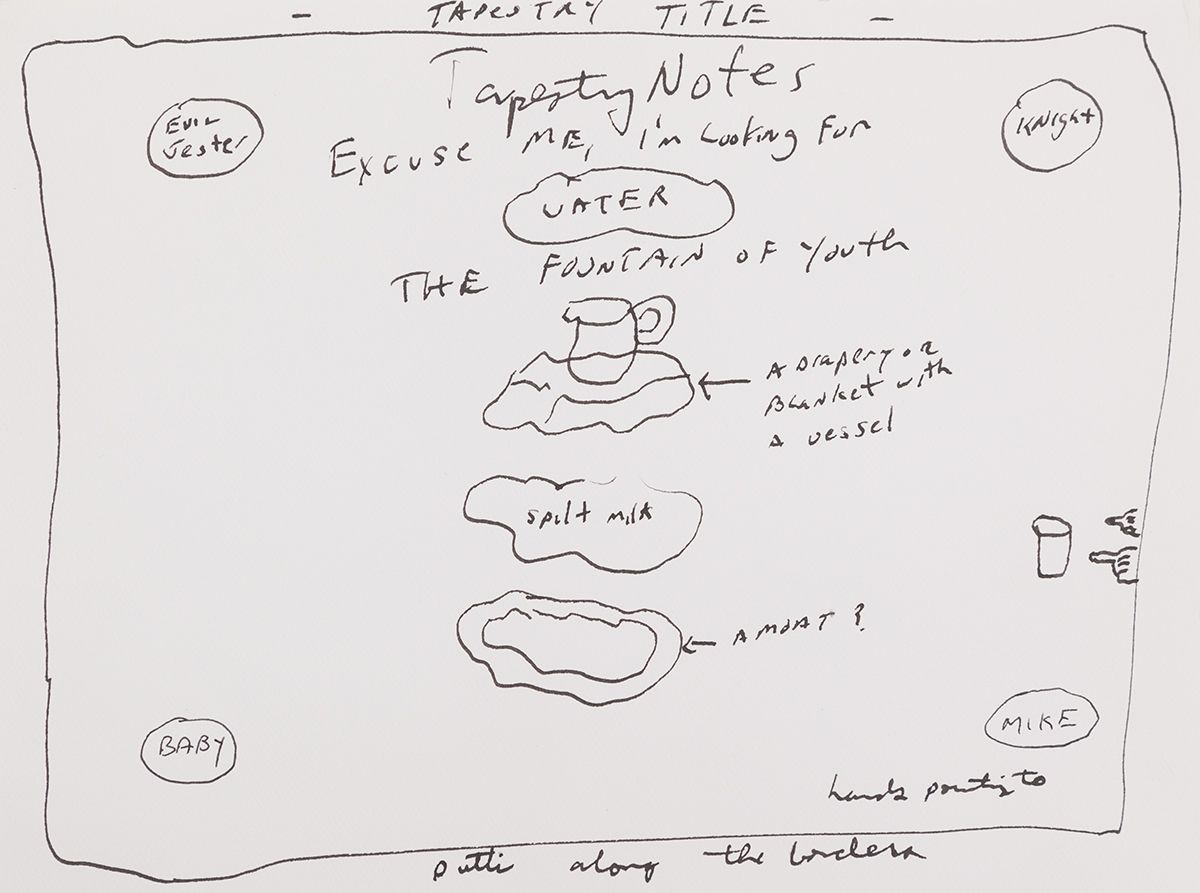 - TAPESTRY TITLE -
Tapestry Notes
EVIL
Jester
KNight
Excuse ME, I'm Looking For
WATER
THE FOUNTAIN OF YOUTH
A DRAPERY OR
BLANKET with
A vessel
spilt milk
A MOAT?
BABY
MIKE
hands pointing to
putti along the borders